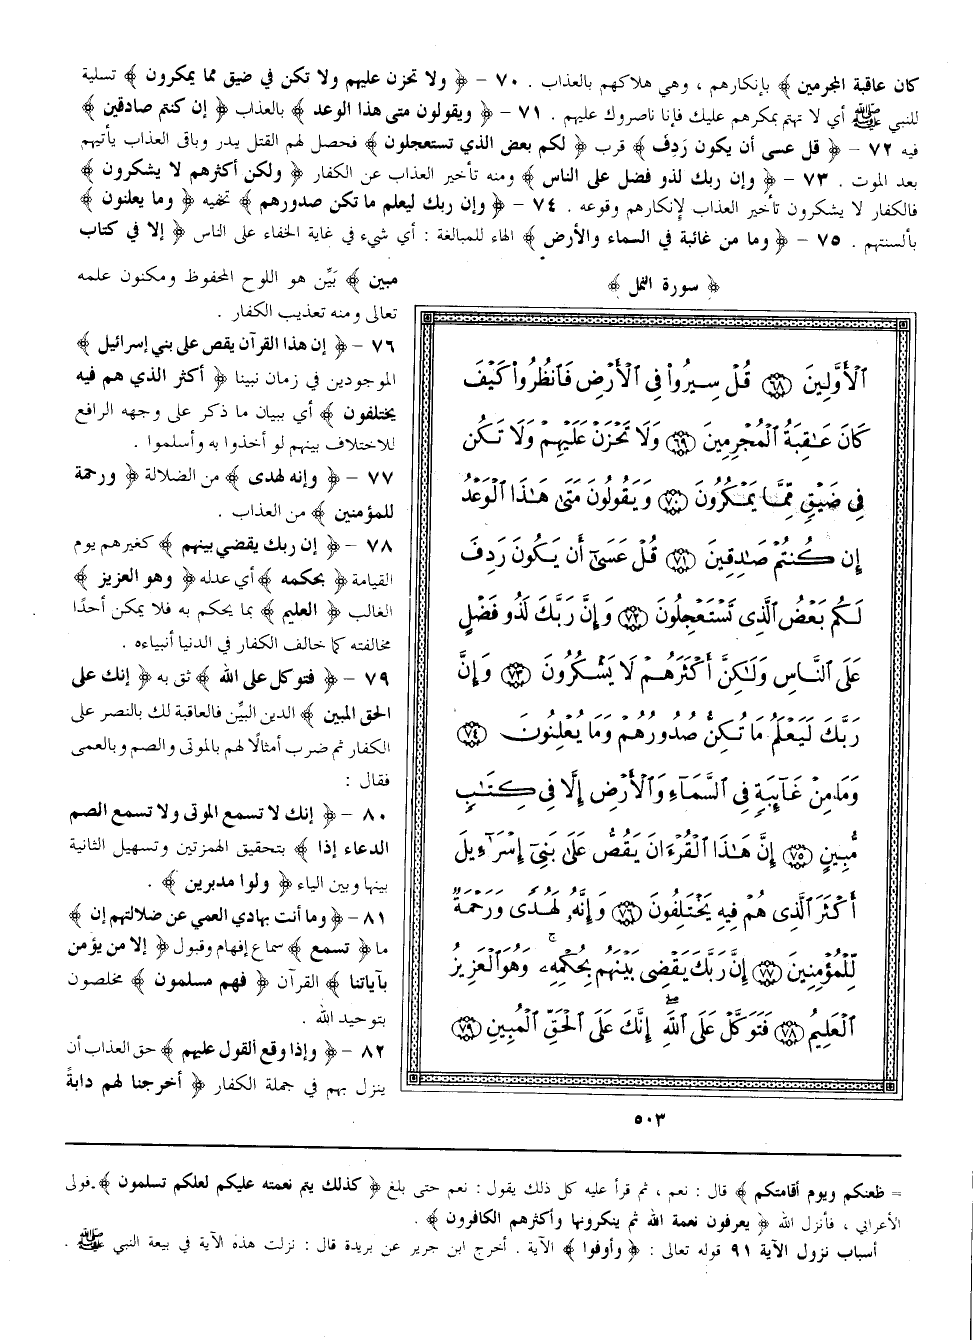 كان عاقبة المجرمين ﴾ بإنكارهم ، وهي هلاكهم بالعذاب . ٧٠ - ﴿ ولا تحزن عليهم ولا تكن في ضيق مما يمكرون ﴾ تسلية
للنبي ﷺ أي لا تهتم بمكرهم عليك فإنا ناصروك عليهم . ٧١ - ﴿ ويقولون متى هذا الوعد ﴾ بالعذاب ﴿ إن كنتم صادقين ﴾
فيه ٧٢ - ﴿ قل عسى أن يكون رَدِفَ ﴾ قرب ﴿ لكم بعض الذي تستعجلون ﴾ فحصل لهم القتل ببدر وباقي العذاب يأتيهم
بعد الموت . ٧٣ - ﴿ وإن ربك لذو فضل على الناس ﴾ ومنه تأخير العذاب عن الكفار ﴿ ولكن أكثرهم لا يشكرون ﴾
فالكفار لا يشكرون تأخير العذاب لإنكارهم وقوعه . ٧٤ - ﴿ وإن ربك ليعلم ما تكن صدورهم ﴾ تخفيه ﴿ وما يعلنون ﴾
بألسنتهم . ٧٥ - ﴿ وما من غائبة في السماء والأرض ﴾ الهاء للمبالغة : أي شيء في غاية الخفاء على الناس ﴿ إلا في كتاب
مبين ﴾ بَيِّن هو اللوح المحفوظ ومكنون علمه
تعالى ومنه تعذيب الكفار .
٧٦ - ﴿ إن هذا القرآن يقص على بني إسرائيل ﴾
الموجودين في زمان نبينا ﴿ أكثر الذي هم فيه
يختلفون ﴾ أي ببيان ما ذكر على وجهه الرافع
للاختلاف بينهم لو أخذوا به وأسلموا .
٧٧ - ﴿ وإنه لهدى ﴾ من الضلالة ﴿ ورحمة
للمؤمنين ﴾ من العذاب .
٧٨ - ﴿ إن ربك يقضي بينهم ﴾ كغيرهم يوم
القيامة ﴿ بحكمه ﴾ أي عدله ﴿ وهو العزيز ﴾
الغالب ﴿ العليم ﴾ بما يحكم به فلا يمكن أحدًا
مخالفته كما خالف الكفار في الدنيا أنبياءه .
٧٩ - ﴿ فتوكل على الله ﴾ ثق به ﴿ إنك على
الحق المبين ﴾ الدين البيِّن فالعاقبة لك بالنصر على
الكفار ثم ضرب أمثالًا لهم بالموتى والصم وبالعمى
فقال :
٨٠ - ﴿ إنك لا تسمع الموتى ولا تسمع الصم
الدعاء إذا ﴾ بتحقيق الهمزتين وتسهيل الثانية
بينها وبين الياء ﴿ ولوا مدبرين ﴾ .
٨١ - ﴿ وما أنت بهادي العمي عن ضلالتهم إن ﴾
ما ﴿ تسمع ﴾ سماع إفهام وقبول ﴿ إلا من يؤمن
بآياتنا ﴾ القرآن ﴿ فهم مسلمون ﴾ مخلصون
بتوحيد الله .
٨٢ - ﴿ وإذا وقع القول عليهم ﴾ حق العذاب أن
ينزل بهم في جملة الكفار ﴿ أخرجنا لهم دابةً
﴿ سورة النمل ﴾
ٱلْأَوَّلِينَ ٦٨ قُلْ سِيرُوا۟ فِى ٱلْأَرْضِ فَٱنظُرُوا۟ كَيْفَ
كَانَ عَٰقِبَةُ ٱلْمُجْرِمِينَ ٦٩ وَلَا تَحْزَنْ عَلَيْهِمْ وَلَا تَكُن
فِى ضَيْقٍ مِّمَّا يَمْكُرُونَ ٧٠ وَيَقُولُونَ مَتَىٰ هَٰذَا ٱلْوَعْدُ
إِن كُنتُمْ صَٰدِقِينَ ٧١ قُلْ عَسَىٰٓ أَن يَكُونَ رَدِفَ
لَكُم بَعْضُ ٱلَّذِى تَسْتَعْجِلُونَ ٧٢ وَإِنَّ رَبَّكَ لَذُو فَضْلٍ
عَلَى ٱلنَّاسِ وَلَٰكِنَّ أَكْثَرَهُمْ لَا يَشْكُرُونَ ٧٣ وَإِنَّ
رَبَّكَ لَيَعْلَمُ مَا تُكِنُّ صُدُورُهُمْ وَمَا يُعْلِنُونَ ٧٤
وَمَا مِنْ غَآئِبَةٍ فِى ٱلسَّمَآءِ وَٱلْأَرْضِ إِلَّا فِى كِتَٰبٍ
مُّبِينٍ ٧٥ إِنَّ هَٰذَا ٱلْقُرْءَانَ يَقُصُّ عَلَىٰ بَنِىٓ إِسْرَٰٓءِيلَ
أَكْثَرَ ٱلَّذِى هُمْ فِيهِ يَخْتَلِفُونَ ٧٦ وَإِنَّهُۥ لَهُدًى وَرَحْمَةٌ
لِّلْمُؤْمِنِينَ ٧٧ إِنَّ رَبَّكَ يَقْضِى بَيْنَهُم بِحُكْمِهِۦ ۚ وَهُوَ ٱلْعَزِيزُ
ٱلْعَلِيمُ ٧٨ فَتَوَكَّلْ عَلَى ٱللَّهِ ۖ إِنَّكَ عَلَى ٱلْحَقِّ ٱلْمُبِينِ ٧٩
٥٠٣
= ظعنكم ويوم أقامتكم ﴾ قال : نعم ، ثم قرأ عليه كل ذلك يقول : نعم حتى بلغ ﴿ كذلك يتم نعمته عليكم لعلكم تسلمون ﴾ . فولى
الأعرابي ، فأنزل الله ﴿ يعرفون نعمة الله ثم ينكرونها وأكثرهم الكافرون ﴾ .
أسباب نزول الآية ٩١ قوله تعالى : ﴿ وأوفوا ﴾ الآية . أخرج ابن جرير عن بريدة قال : نزلت هذه الآية في بيعة النبي ﷺ .